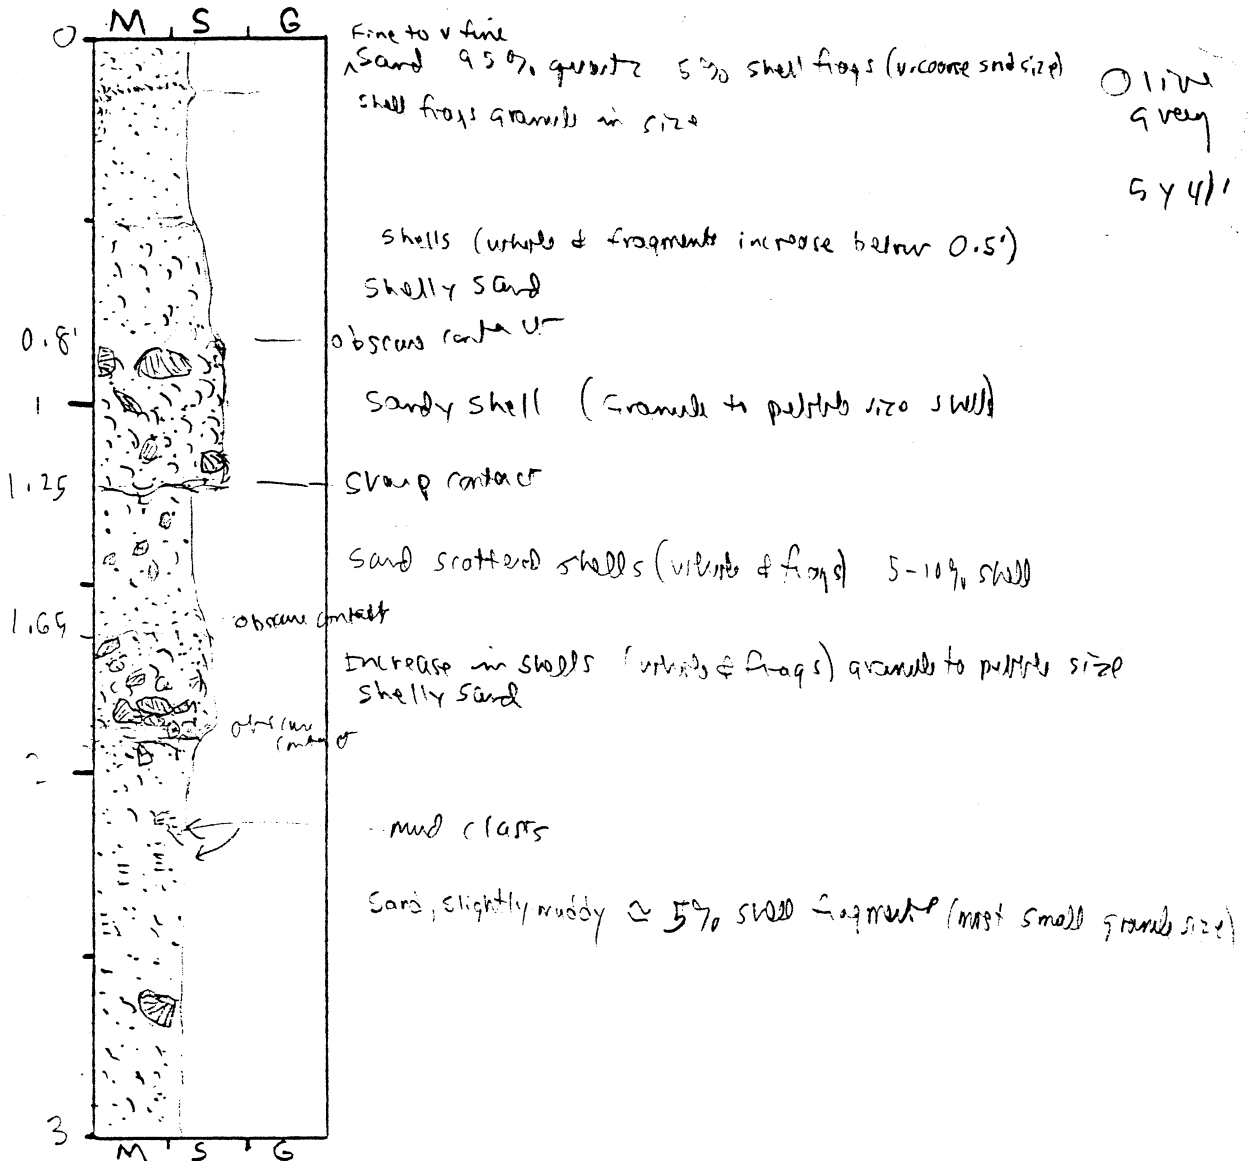 M S G
0
Fine to v fine
^Sand 95% quartz 5% shell frags (v.coarse snd size)
Olive
grey
shell frags granule in size
5Y 4/1
shells (whole & fragments increase below 0.5')
Shelly sand
0.8'
obscure contact
1
Sandy shell (Granule to pebble size shell)
1.25
sharp contact
Sand scattered shells (whole & frags) 5-10% shell
1.65
obscure contact
Increase in shells (whole & frags) granule to pebble size
Shelly sand
obscure
contact
2
mud clasts
Sand, slightly muddy ≃ 5% shell fragments (most small granule size)
3
M S G